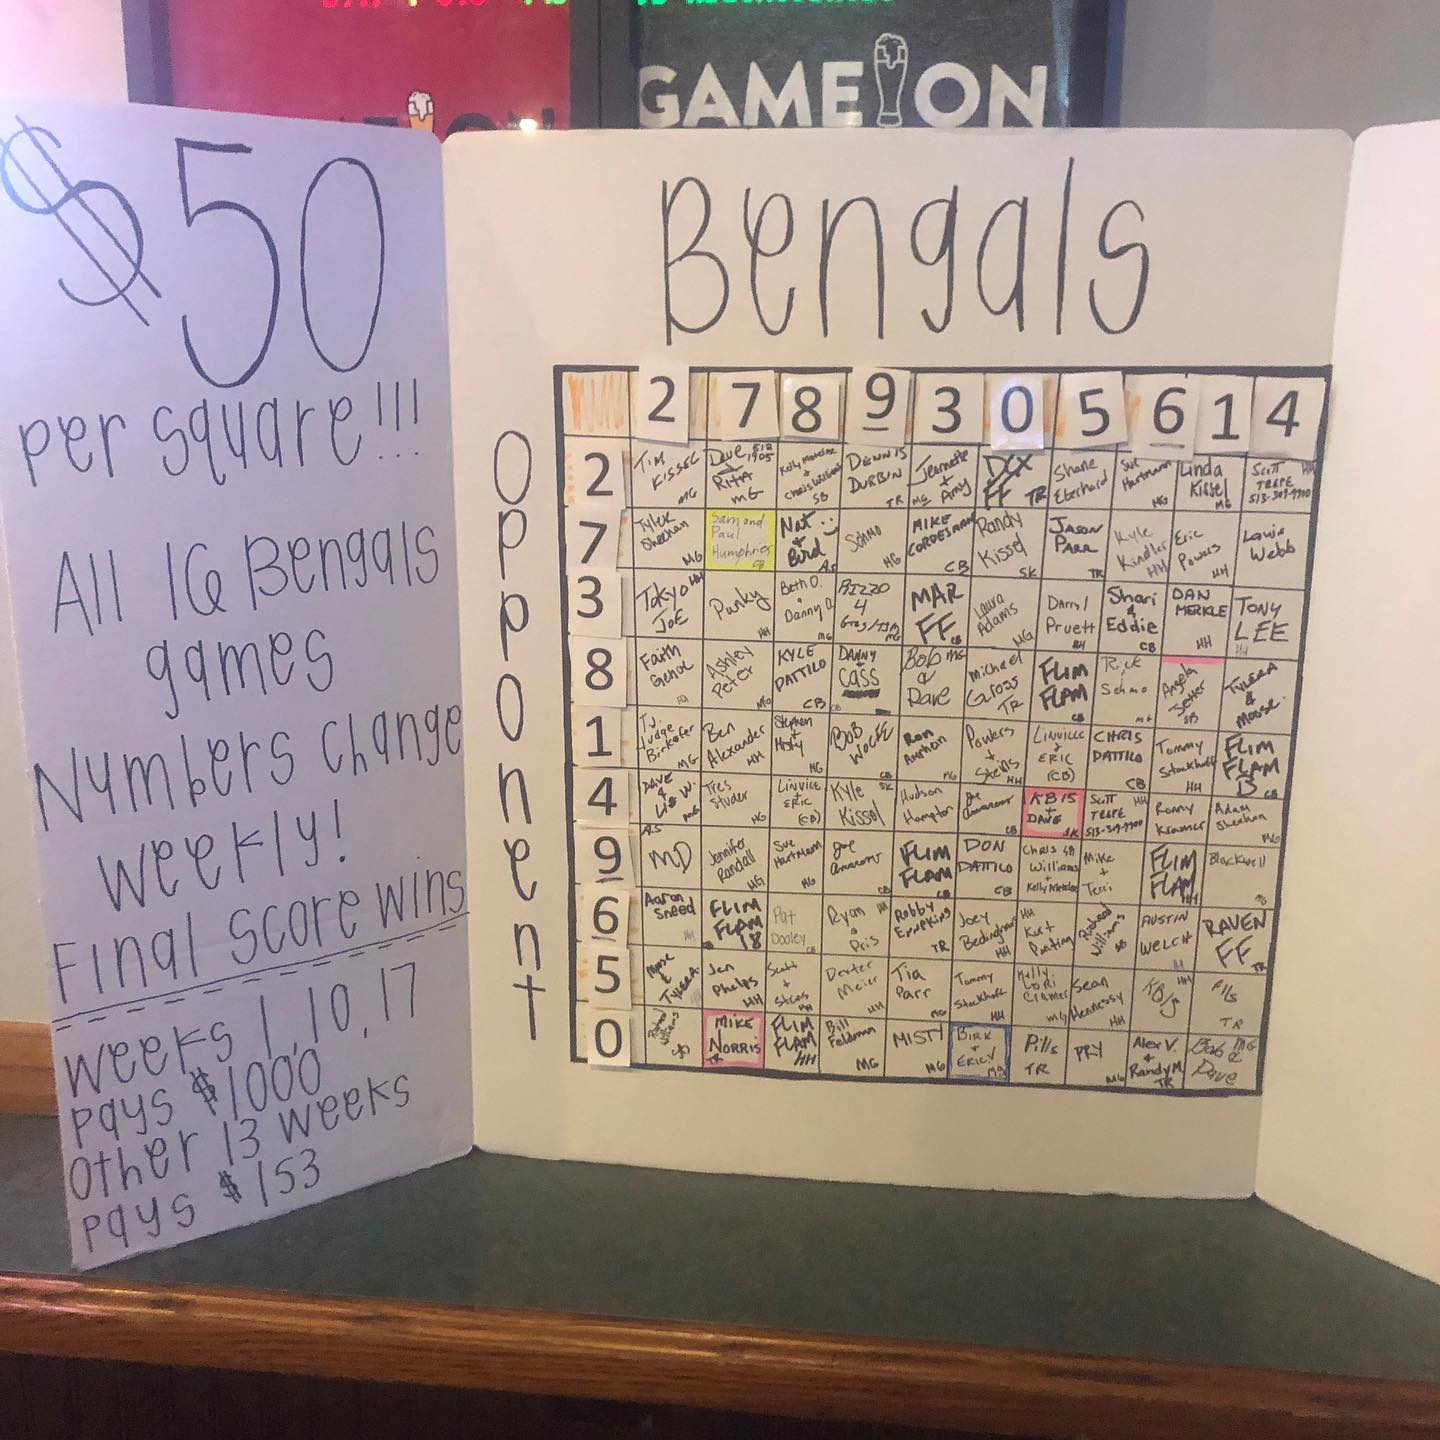 GAME ON
$50
per square!!!
All 16 Bengals
games
Numbers change
weekly!
Final Score wins
weeks 1, 10, 17
pays $1000
Other 13 weeks
pays $153
Bengals
Opponent
2 7 8 9 3 0 5 6 1 4
2
TIM KISSEL MG
Dave + RITA MG
DENNIS DURBIN TR
Jeannette + Amy MG
FF TR
Shane Eberhard
Sue Hartmann MG
Linda Kissel MG
SCOTT TRAPE HH
7
Tyler Sheehan MG
Sam and Paul Humphries CB
Nat + Bird AS
Schmo MG
MIKE CORDESMAN CB
Randy Kissel SK
JASON PARR TR
Kyle Kindler HH
Eric Powers HH
Louis Webb
3
Tokyo JOE HH
Punky HH
Beth D. Danny D. MG
RIZZO 4 MG
MAR FF CB
Laura Adams MG
Darryl Pruett HH
Shari & Eddie CB
DAN MERKLE HH
TONY LEE HH
8
Faith
Ashley Peter MG
KYLE DATTILO CB
DANNY CASS CB
Bob & Dave MG
Michael Gross TR
FLIM FLAM CB
Rick Schmo
Angela SB
TYLERA & Moose
1
T.J. Judge MG
Ben Alexander HH
Stephen + Misty MG
BOB CB
Ron MG
Powers + Steins HH
LINVILLE + ERIC (CB)
CHRIS DATTILO CB
Tommy Stockhoff HH
FLIM FLAM CB
4
DAVE & Lis W. MG
Tres Studer MG
LINVILLE + ERIC (CB)
Kyle Kissel SK
Hudson Hampton
Joe CB
KB15 + DAVE SK
SCOTT TRAPE HH
Ronny Kramer HH
Adam Sheehan MG
9
MD AS
Jennifer Randall MG
Sue Hartmann MG
Joe CB
FLIM FLAM CB
DON DATTILO CB
Chris Williams + Kelly SB
Mike + Terri
FLIM FLAM HH
Blackwell
6
Aaron Sneed HH
FLIM FLAM 18
Pat Dooley CB
Ryan & Pris HH
Robby TR
Joey HH
HH Kurt
Richard Williams SB
AUSTIN WELCH HH
RAVEN FF TR
5
Moose & TYLERA
Jen Phelps HH
Scott + HH
Dexter Meier HH
Tia Parr MG
Tommy Stockhoff HH
Lori Cramer MG
Sean Hennessy HH
HH
Pills TR
0
Richard Williams SB
MIKE NORRIS TR
FLIM FLAM HH
Bill Feldman MG
MISTY MG
BIRK + ERICV MG
Pills TR
PRY MG
Alex V. & Randy M. TR
Bob & Dave MG